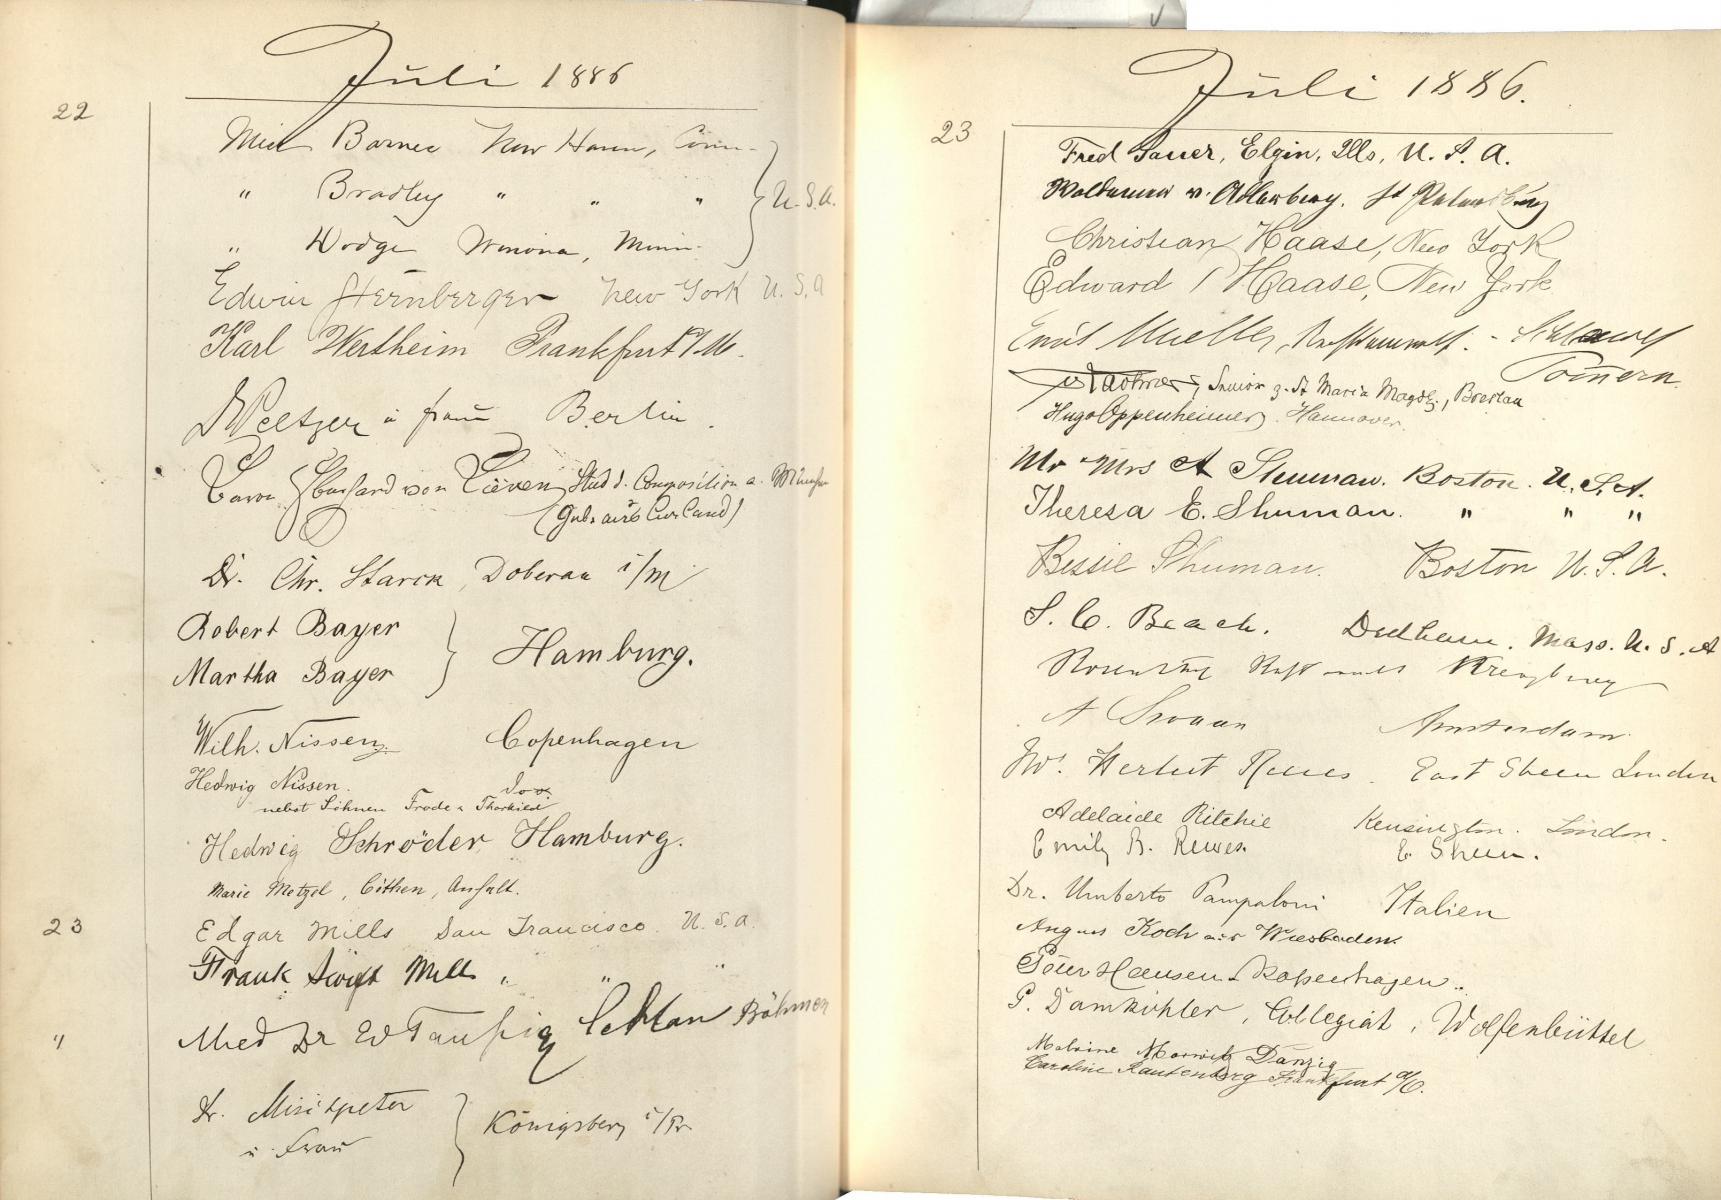 Juli 1886
22
Miss Barnes New Haven, Conn.
" Bradley " " " U.S.A.
" Dodge Winona, Minn.
Edwin Sternberger New York U.S.A
Karl Wertheim Frankfurt a/M.
u frau Berlin.
Baron Eberhard von Lieven, Stud d. Composition a. München
(Geb. aus Curland)
Dr. Chr. Starck, Doberan i/m
Robert Bayer
Martha Bayer
Hamburg.
Wilh. Nissen Copenhagen
Hedwig Nissen. do
nebst Söhnen Frode u Thorkild
Hedwig Schröder Hamburg.
Marie Metzel, Cöthen, Anhalt.
23
Edgar Mills San Francisco U.S.A.
Frank Swift Mills " " "
" Med Dr Ed Taussig Böhmen
Dr.
u. Frau
Königsberg i/Pr
Juli 1886.
23
Fred Sauer, Elgin, Ills, U.S.A.
Woldemar v. Adlerberg. St Petersburg
Christian Haase, New York
Edward / Haase, New York
Emil Mueller, Rechtsanwalt. - Schlawe
Pomern.
Senior z. St Maria Magdl., Breslau
Hugo Oppenheimer. Hannover.
Mr Mrs A Shuman. Boston. U.S.A.
Theresa E. Shuman. " " "
Bessie Shuman. Boston U.S.A.
S. C. Beach. Dedham. Mass. U.S.A
A Swaan Amsterdam.
Herbert Reeves. East Sheen London
Adelaide Ritchie Kensington. London.
Emily B. Reeves. E. Sheen.
Dr. Umberto Pampaloni Italien
August Koch aus Wiesbaden.
Peter Hansen Kopenhagen.
P. Damköhler, Collegiat, Wolfenbüttel
Malvine Marwitz Danzig
Caroline Rautenberg Frankfurt a/O.